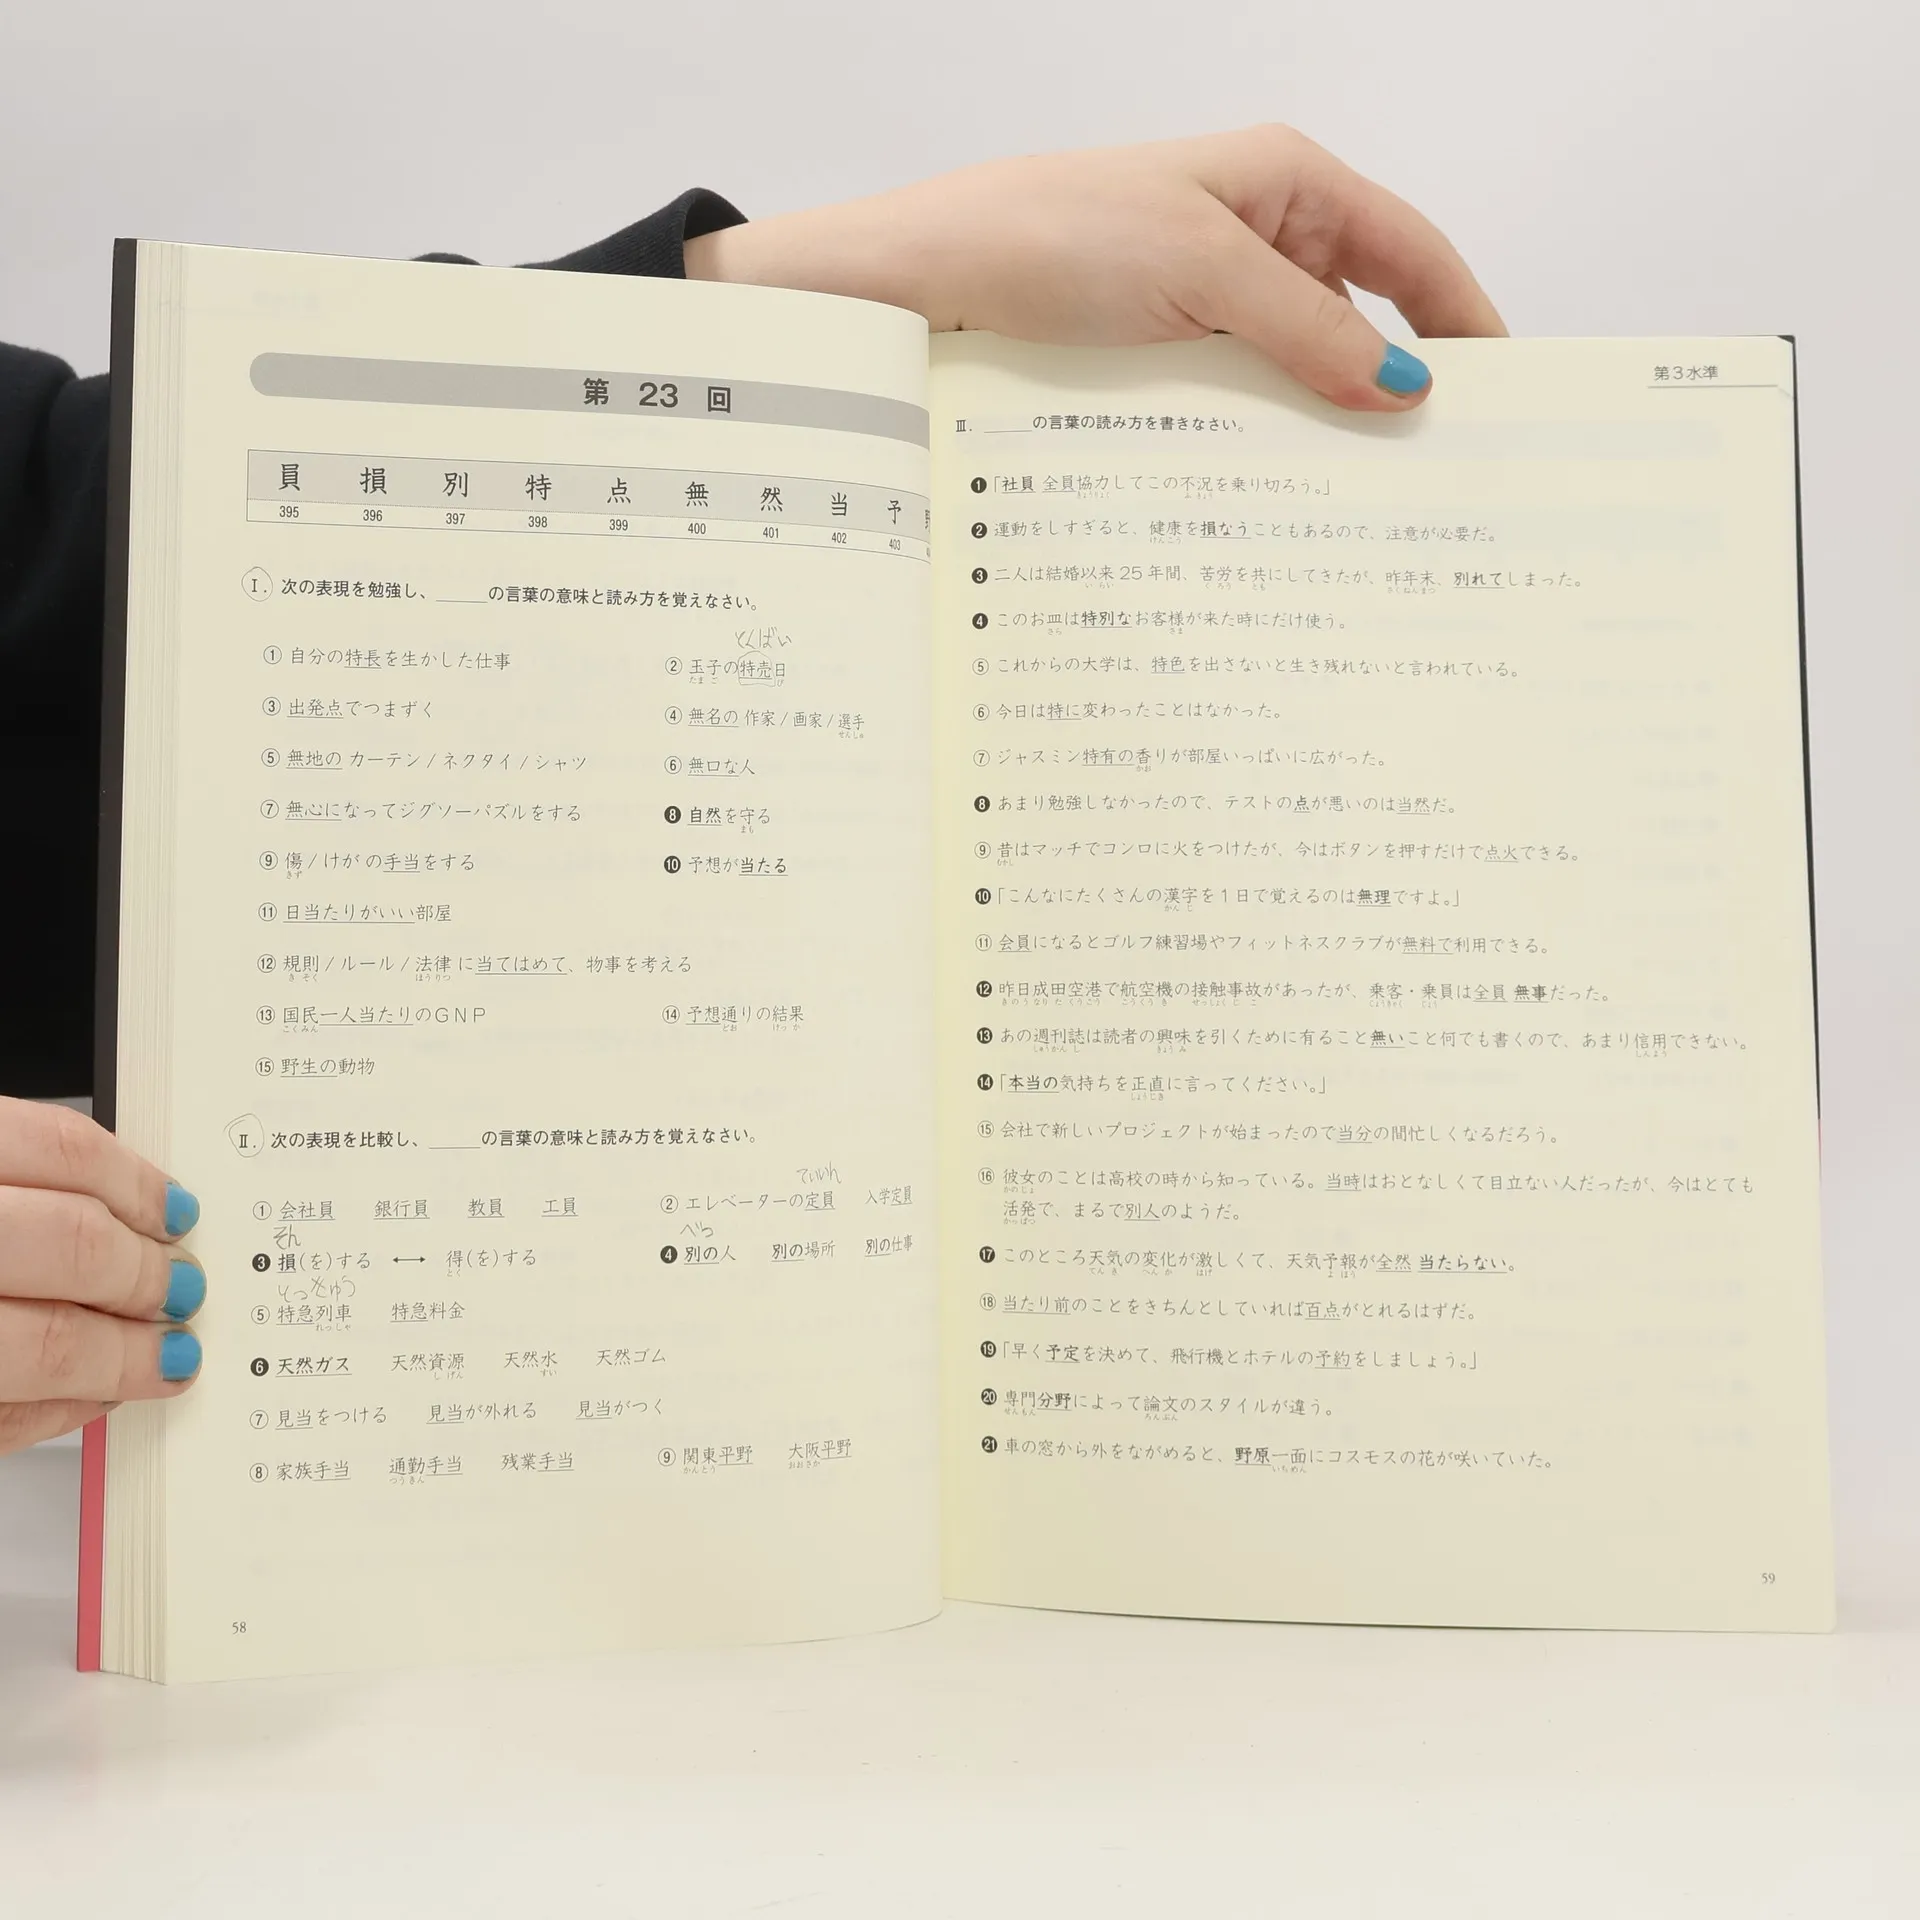 第 23 回
員 損 別 特 点 無 然 当 予
395 396 397 398 399 400 401 402 403
Ⅰ. 次の表現を勉強し、______の言葉の意味と読み方を覚えなさい。
とくばい
① 自分の特長を生かした仕事 ② 玉子の特売日
たまご び
③ 出発点でつまずく ④ 無名の 作家/画家/選手
せんしゅ
⑤ 無地の カーテン/ネクタイ/シャツ ⑥ 無口な人
⑦ 無心になってジグソーパズルをする ❽ 自然を守る
まも
⑨ 傷/けが の手当をする ❿ 予想が当たる
きず
⑪ 日当たりがいい部屋
⑫ 規則/ルール/法律 に当てはめて、物事を考える
きそく ほうりつ
⑬ 国民一人当たりのGNP ⑭ 予想通りの結果
こくみん どお けっか
⑮ 野生の動物
Ⅱ. 次の表現を比較し、______の言葉の意味と読み方を覚えなさい。
ていいん
① 会社員 銀行員 教員 工員 ② エレベーターの定員 入学定員
そん べつ
❸ 損(を)する ←→ 得(を)する ❹ 別の人 別の場所 別の仕事
とく
とっきゅう
⑤ 特急列車 特急料金
れっしゃ
❻ 天然ガス 天然資源 天然水 天然ゴム
しげん すい
⑦ 見当をつける 見当が外れる 見当がつく
⑧ 家族手当 通勤手当 残業手当 ⑨ 関東平野 大阪平野
つうきん かんとう おおさか
58
第3水準
Ⅲ. ______の言葉の読み方を書きなさい。
❶「社員 全員協力してこの不況を乗り切ろう。」
きょうりょく ふきょう
❷ 運動をしすぎると、健康を損なうこともあるので、注意が必要だ。
けんこう
❸ 二人は結婚以来25年間、苦労を共にしてきたが、昨年末、別れてしまった。
いらい くろう とも さくねんまつ
❹ このお皿は特別なお客様が来た時にだけ使う。
さら さま
⑤ これからの大学は、特色を出さないと生き残れないと言われている。
⑥ 今日は特に変わったことはなかった。
⑦ ジャスミン特有の香りが部屋いっぱいに広がった。
かお
❽ あまり勉強しなかったので、テストの点が悪いのは当然だ。
⑨ 昔はマッチでコンロに火をつけたが、今はボタンを押すだけで点火できる。
むかし
❿「こんなにたくさんの漢字を1日で覚えるのは無理ですよ。」
かんじ
⑪ 会員になるとゴルフ練習場やフィットネスクラブが無料で利用できる。
⓬ 昨日成田空港で航空機の接触事故があったが、乗客・乗員は全員 無事だった。
きのうなりたくうこう こうくうき せっしょくじこ じょうきゃく じょう
⓭ あの週刊誌は読者の興味を引くために有ること無いこと何でも書くので、あまり信用できない。
しゅうかんし きょうみ しんよう
⓮「本当の気持ちを正直に言ってください。」
しょうじき
⑮ 会社で新しいプロジェクトが始まったので当分の間忙しくなるだろう。
⑯ 彼女のことは高校の時から知っている。当時はおとなしくて目立ない人だったが、今はとても
かのじょ
活発で、まるで別人のようだ。
かっぱつ
⓱ このところ天気の変化が激しくて、天気予報が全然 当たらない。
てんき へんか はげ よほう
⑱ 当たり前のことをきちんとしていれば百点がとれるはずだ。
⓳「早く予定を決めて、飛行機とホテルの予約をしましょう。」
⓴ 専門分野によって論文のスタイルが違う。
せんもん ろんぶん
㉑ 車の窓から外をながめると、野原一面にコスモスの花が咲いていた。
いちめん
59